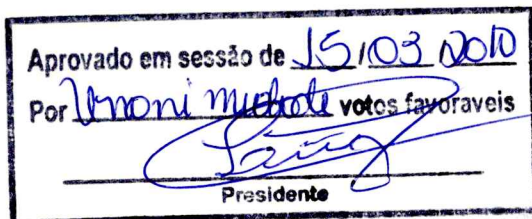 Aprovado em sessão de 15/03/2010
Por Unanimidade votos favoraveis
Presidente